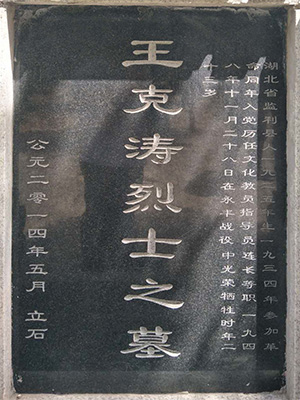 湖北省监利县人一九二五年生一九三四年参加革
命同年入党历任文化教员指导员连长等职一九四
八年十一月二十八日在永丰战役中光荣牺牲时年二
十三岁
王克涛烈士之墓
公元二零一四年五月 立石